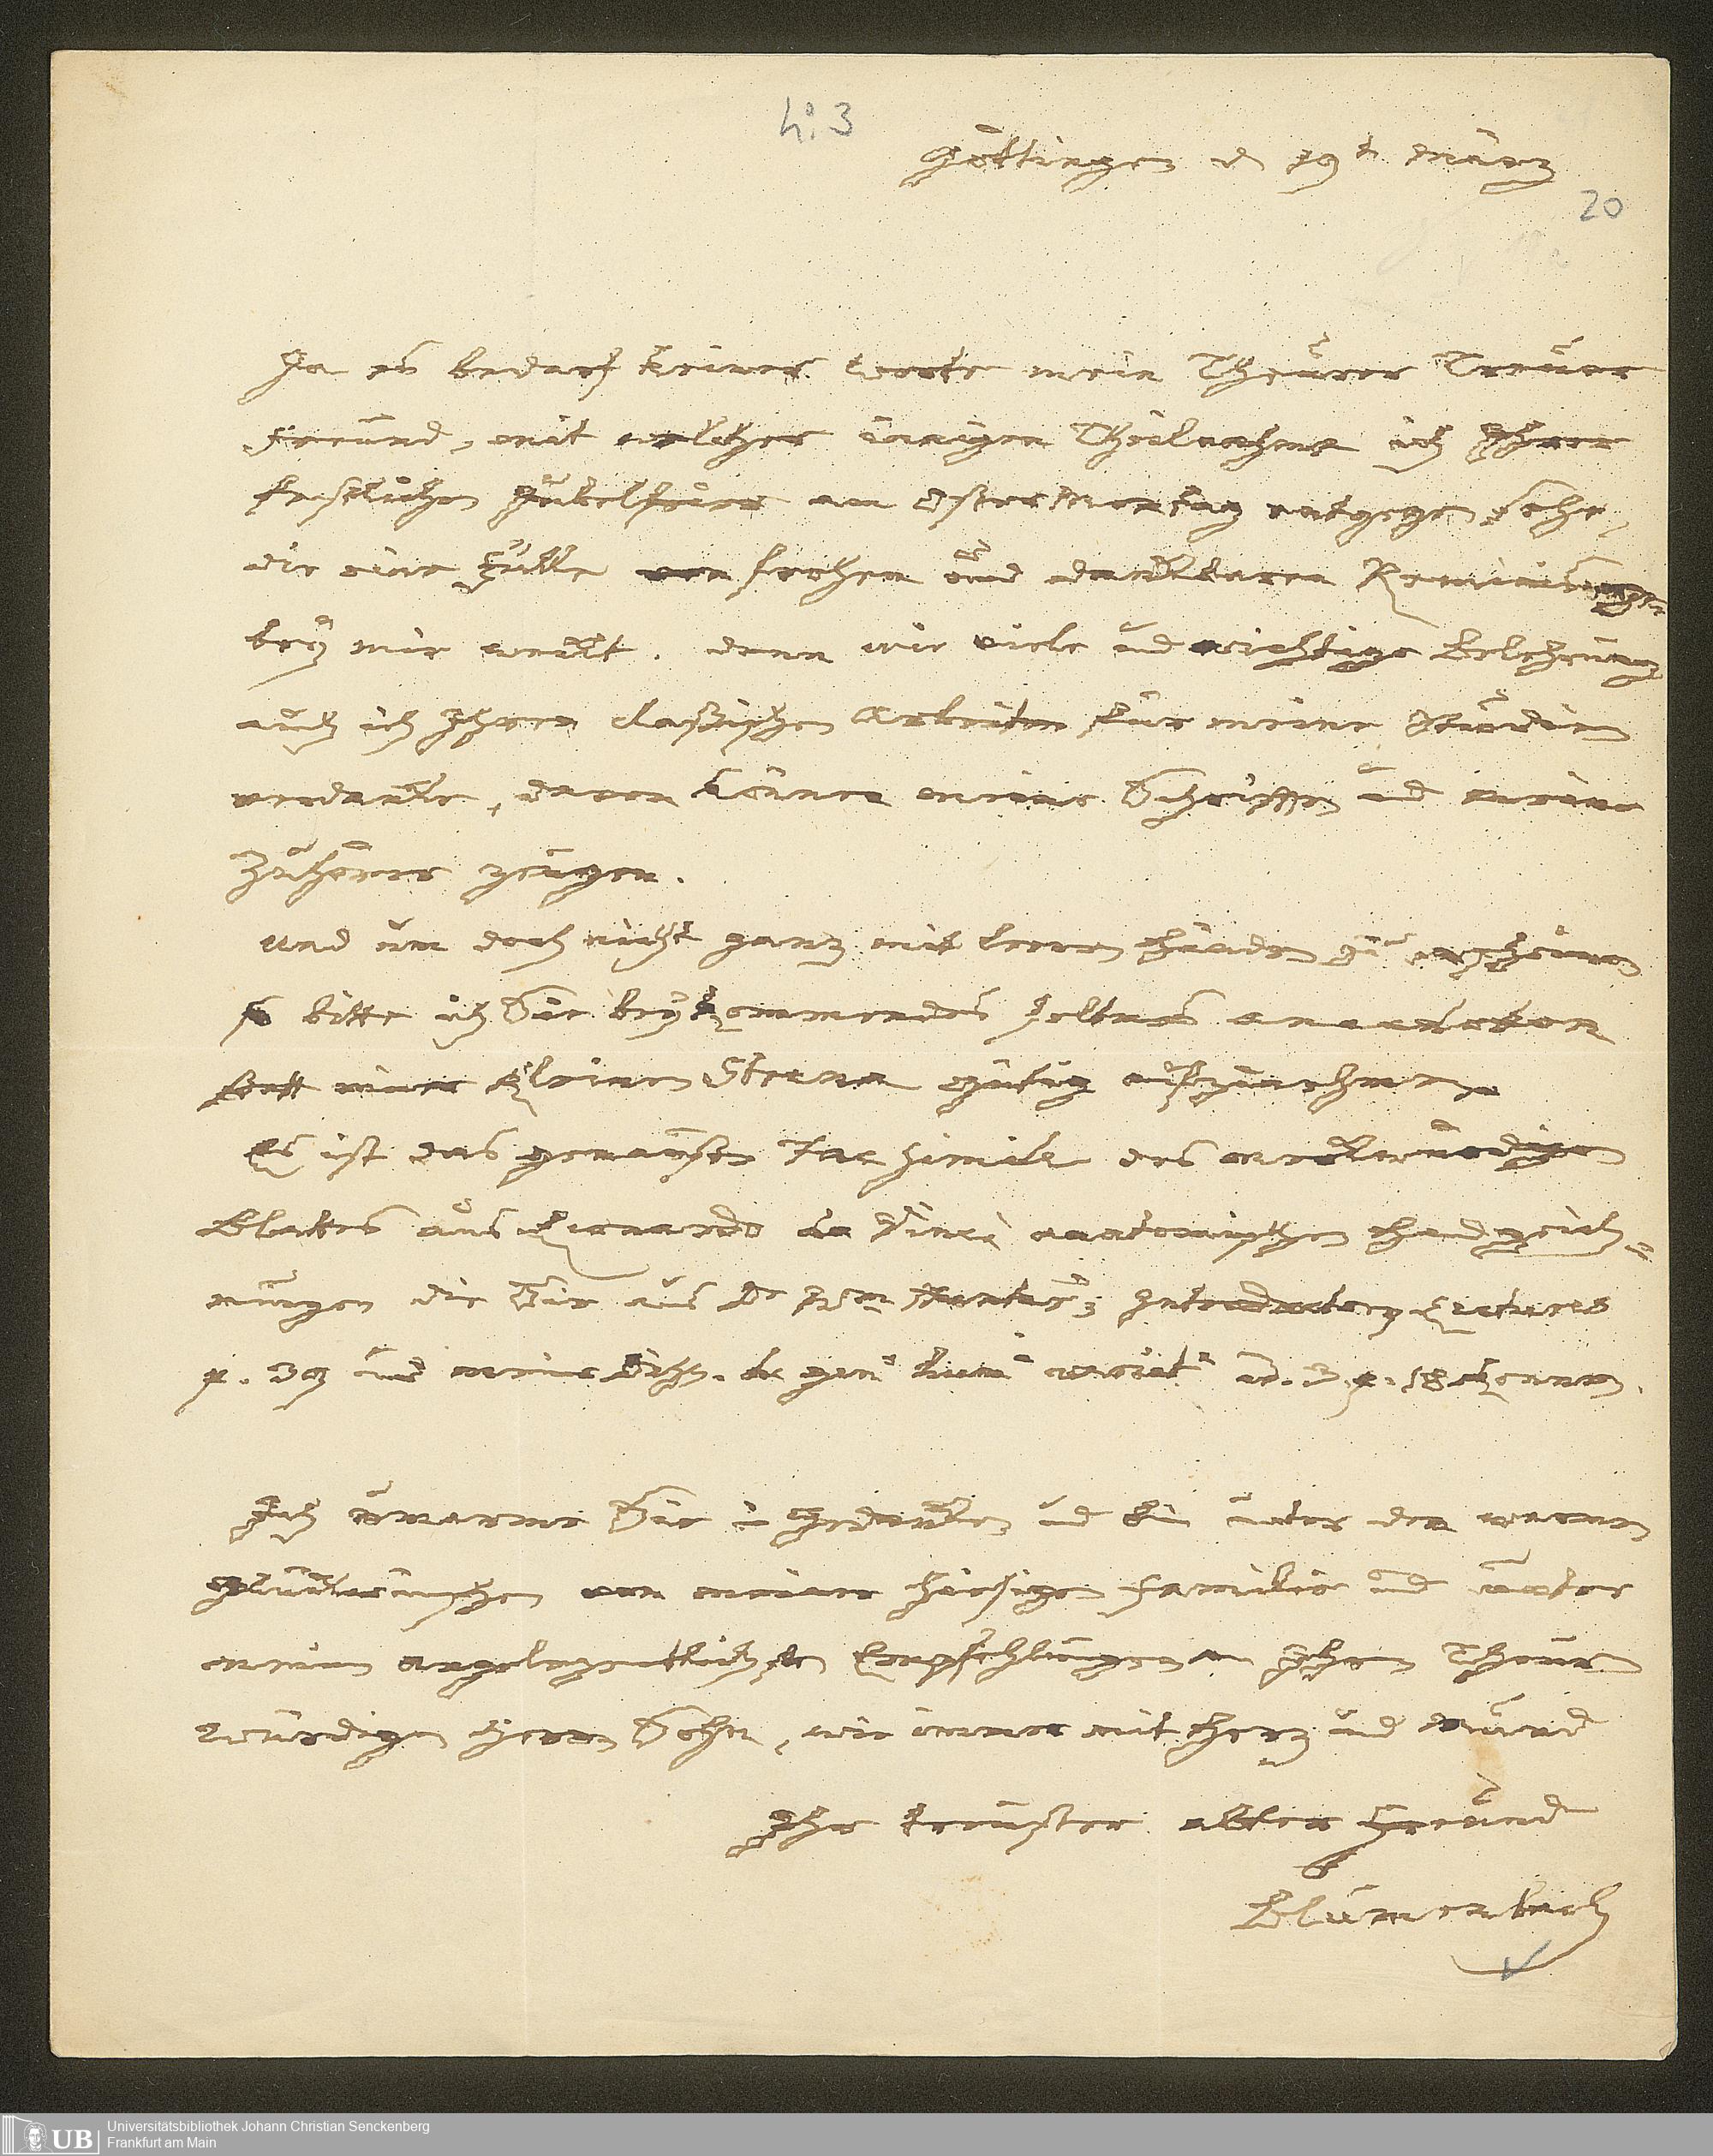 h: 3
Göttingen d 19t März
20
Ja es bedarf keiner Worte mein Theurer Treuer
Freund, mit welcher innigen Theilnahme ich Ihrer
festlichen Jubelfeier am Ostermontag entgegen sehe,
die eine Fülle von frohen und dankbaren Reminiscenzen
bey mir weckt. denn wie viele und wichtige Belehrung
auch ich Ihren classischen Arbeiten für meine Studien
verdanke, davon können meine Schriften und meine
Zuhörer zeugen.
Und um doch nicht ganz mit leeren Händen zu erscheinen
so bitte ich Sie beykommendes seltnes anecdoton
statt einer kleinen Strena gütig aufzunehmen.
Es ist das genauste Facsimile des merkwürdigen
Blattes aus Leonardo da Vinci anatomischen Handzeich=
nungen die Sie aus Dr Wm Hunter's Introductory Lectures
p. 39 und meine Schr. de gen. hum. variet. ed. 3. p. 18 kennen.
Ich umarme Sie in Gedanken und bin unter den warmen
Glückwünschen von meiner hiesigen Familie und unter
meinen angelegentlichsten Empfehlungen an Ihren Theuren
würdigen Herrn Sohn, wie immer mit Herz und Mund
Ihr treuster alter Freund
Blumenbach
UB
Universitätsbibliothek Johann Christian Senckenberg
Frankfurt am Main